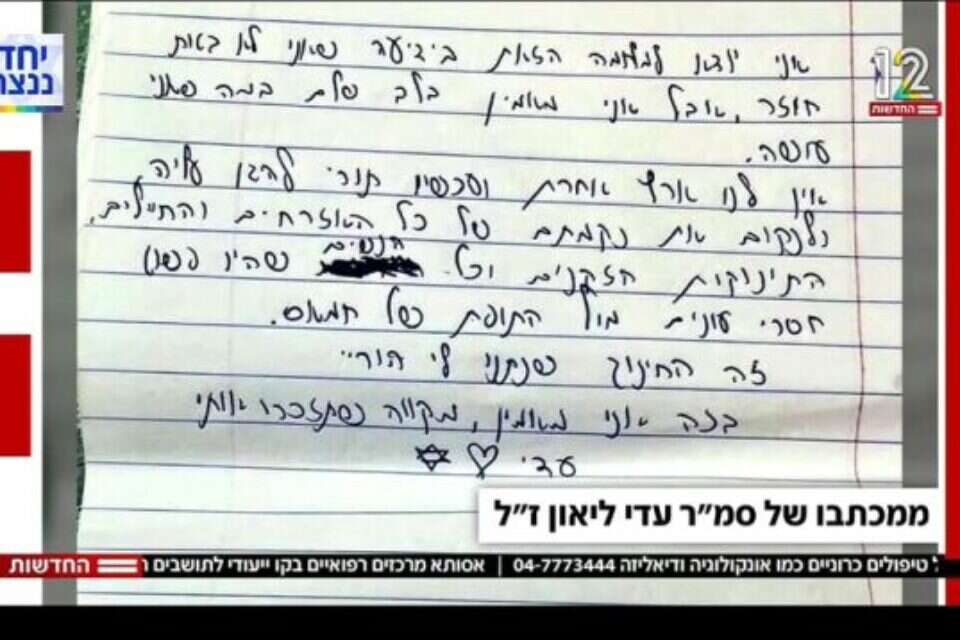 יחד
ננצח
12
החדשות
אני יוצא למלחמה הזאת בידיעה שאני לא בטוח
חוזר, אבל אני מאמין בלב שלם במה שאני
עושה.
אין לנו ארץ אחרת ועכשיו תורי להגן עליה
ולנקום את נקמתם של כל האזרחים והחיילים,
התינוקות הזקנים וכל הנשים שהיו פשוט
חסרי אונים מול התופת של חמאס.
זה החינוך שנתנו לי הוריי
בזה אני מאמין, מקווה שתזכרו אותי
עדי
ממכתבו של סמ״ר עדי ליאון ז״ל
החדשות
ל טיפולים כרוניים כמו אונקולוגיה ודיאליזה 04-7773444 | אסותא מרכזים רפואיים בקו ייעודי לתושבים ה